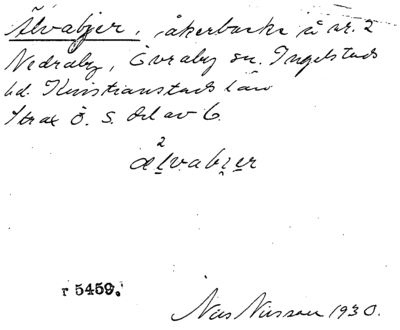 Älvabjer, åkerbacke å nr. 2
Nedraby, Övraby sn. Ingelstads
hd. Kristianstads län
Strax ö. S. del av 6.
2
ælvabjer
r 5459.
Nils Nilsson 1930.